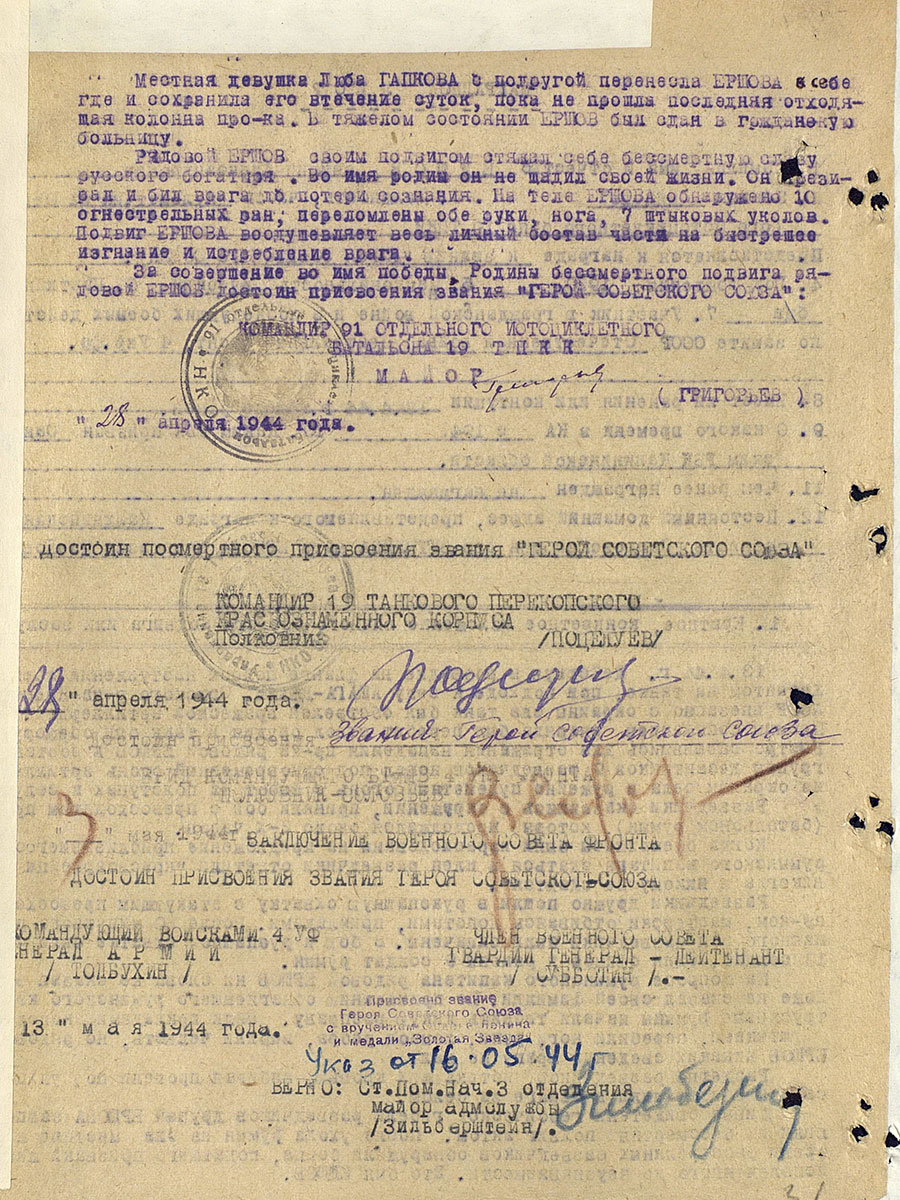 Местная девушка Люба ГАПКОВА с подругой перенесла ЕРШОВА к себе
где и сохранила его втечение суток, пока не прошла последняя отходя-
щая колонна про-ка. В тяжелом состоянии ЕРШОВ был сдан в гржданскую
больницу.
Рядовой ЕРШОВ своим подвигом стяжал себе бессмертную славу
русского богатыря. Во имя родины он не щадил своей жизни. Он прези-
рал и бил врага до потери сознания. На теле ЕРШОВА обнаружено 10
огнестрельных ран, переломлены обе руки, нога, 7 штыковых уколов.
Подвиг ЕРШОВА воодушевляет весь личный состав части на быстрейшее
изгнание и истребление врага.
За совершение во имя победы, Родины бессмертного подвига ря-
довой ЕРШОВ достоин присвоения звания "ГЕРОЙ СОВЕТСКОГО СОЮЗА":
КОМАНДИР 91 ОТДЕЛЬНОГО МОТОЦИКЛЕТНОГО
БАТАЛЬОНА 19 Т П К К
М А Й О Р
( ГРИГОРЬЕВ )
" 28 " апреля 1944 года.
ДОСТОИН ПОСМЕРТНОГО ПРИСВОЕНИЯ ЗВАНИЯ "ГЕРОЙ СОВЕТСКОГО СОЮЗА"
КОМАНДИР 19 ТАНКОВОГО ПЕРЕКОПСКОГО
КРАСНОЗНАМЕННОГО КОРПУСА
Полковник /ПОЦЕЛУЕВ/
28 " апреля 1944 года.
Достоин присвоения звания Герой советского союза
" 3 " мая 1944г
ЗАКЛЮЧЕНИЕ ВОЕННОГО СОВЕТА ФРОНТА
ДОСТОИН ПРИСВОЕНИЯ ЗВАНИЯ ГЕРОЯ СОВЕТСКОГО СОЮЗА
КОМАНДУЮЩИЙ ВОЙСКАМИ 4 УФ
ЕНЕРАЛ А Р М И И
/ ТОЛБУХИН /
ЧЛЕН ВОЕННОГО СОВЕТА
ГВАРДИИ ГЕНЕРАЛ - ЛЕЙТЕНАНТ
/ СУББОТИН /.-
13 " м а я 1944 года.
Присвоено звание
Героя Советского Союза
с вручением Ордена Ленина
и медали „Золотая Звезда"
Указ от 16.05.44 г
ВЕРНО: Ст.Пом.Нач.3 отделения
майор адмслужбы
/Зильберштейн/.